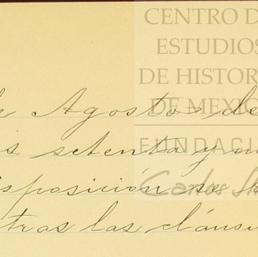 CENTRO D
ESTUDIOS
DE HISTOR
DE MEXIC
FUNDACI
Carlos Sl
de Agosto de
is setenta y
isposición se
tras las cláusu